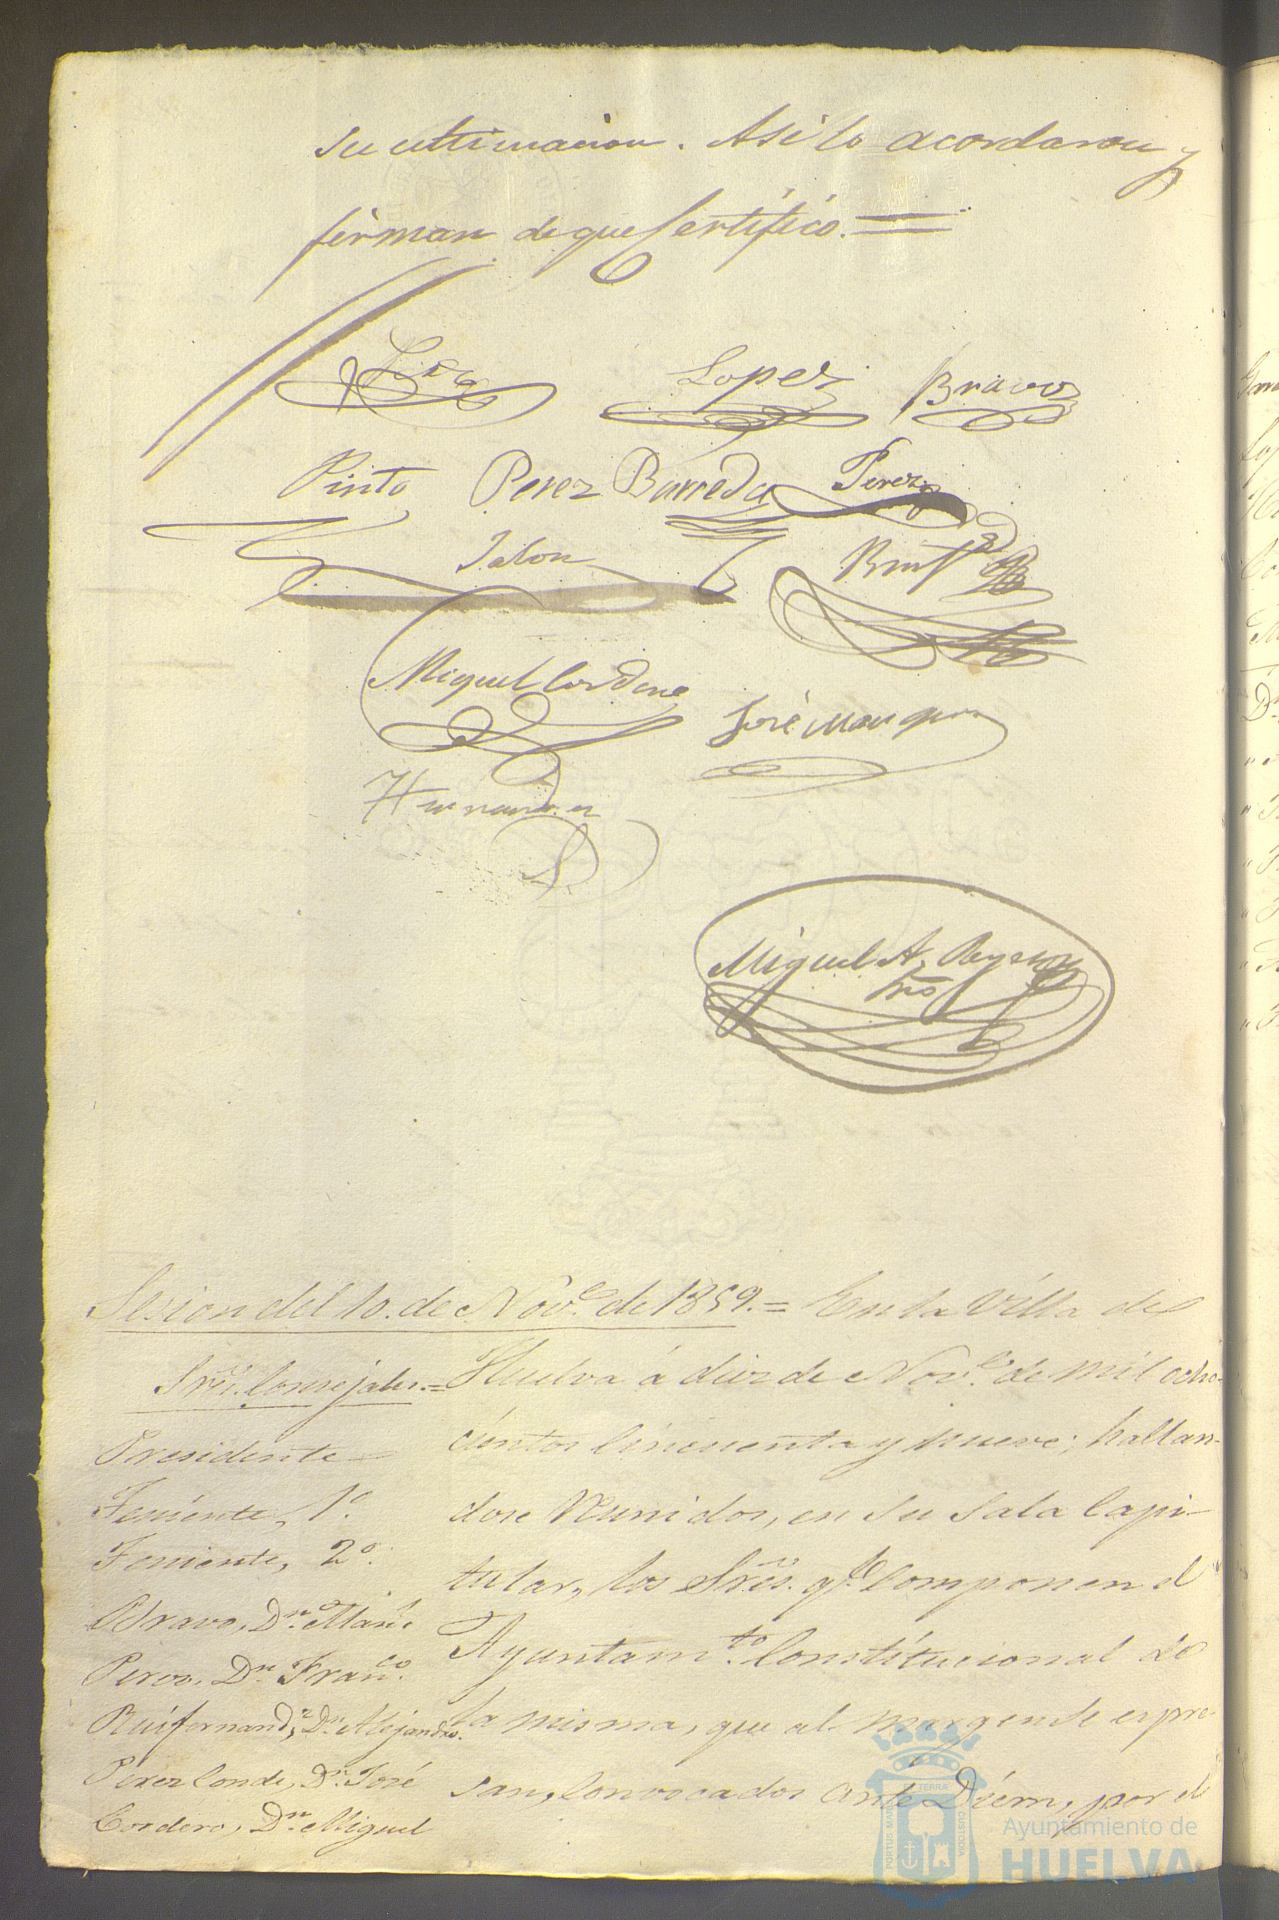 su ultimacion. Asi lo acordaron y
firman de que Certifico. =
Lopez Bravo
Pinto Perez Barreda Perez
Jalon Ruif
Miguel Cordero José Marquez
Hernandez
Miguel A,
Srio
Sesion del 10. de Nove. de 1859. = En la Villa de
Sres. Consejales. =
Huelva á diez de Nove. de mil ocho-
cientos Cincuenta y nueve; hallan-
dose Reunidos, en su Sala Capi-
tular, los Sres. qe. Componen el
Ayuntamto. Constitucional de
la misma, que al margen se espre-
san, Convocados ante Diem, por el
Presidente
Teniente, 1o.
Teniente, 2o.
Bravo, Dn. Manl.
Perez, Dn. Franco.
Ruifernandz, Dn. Alejandro.
Perez Conde, Dn. José
Cordero, Dn. Miguel
PORTUS MARIS ET TERRÆ CUSTODIA
Ayuntamiento de
HUELVA